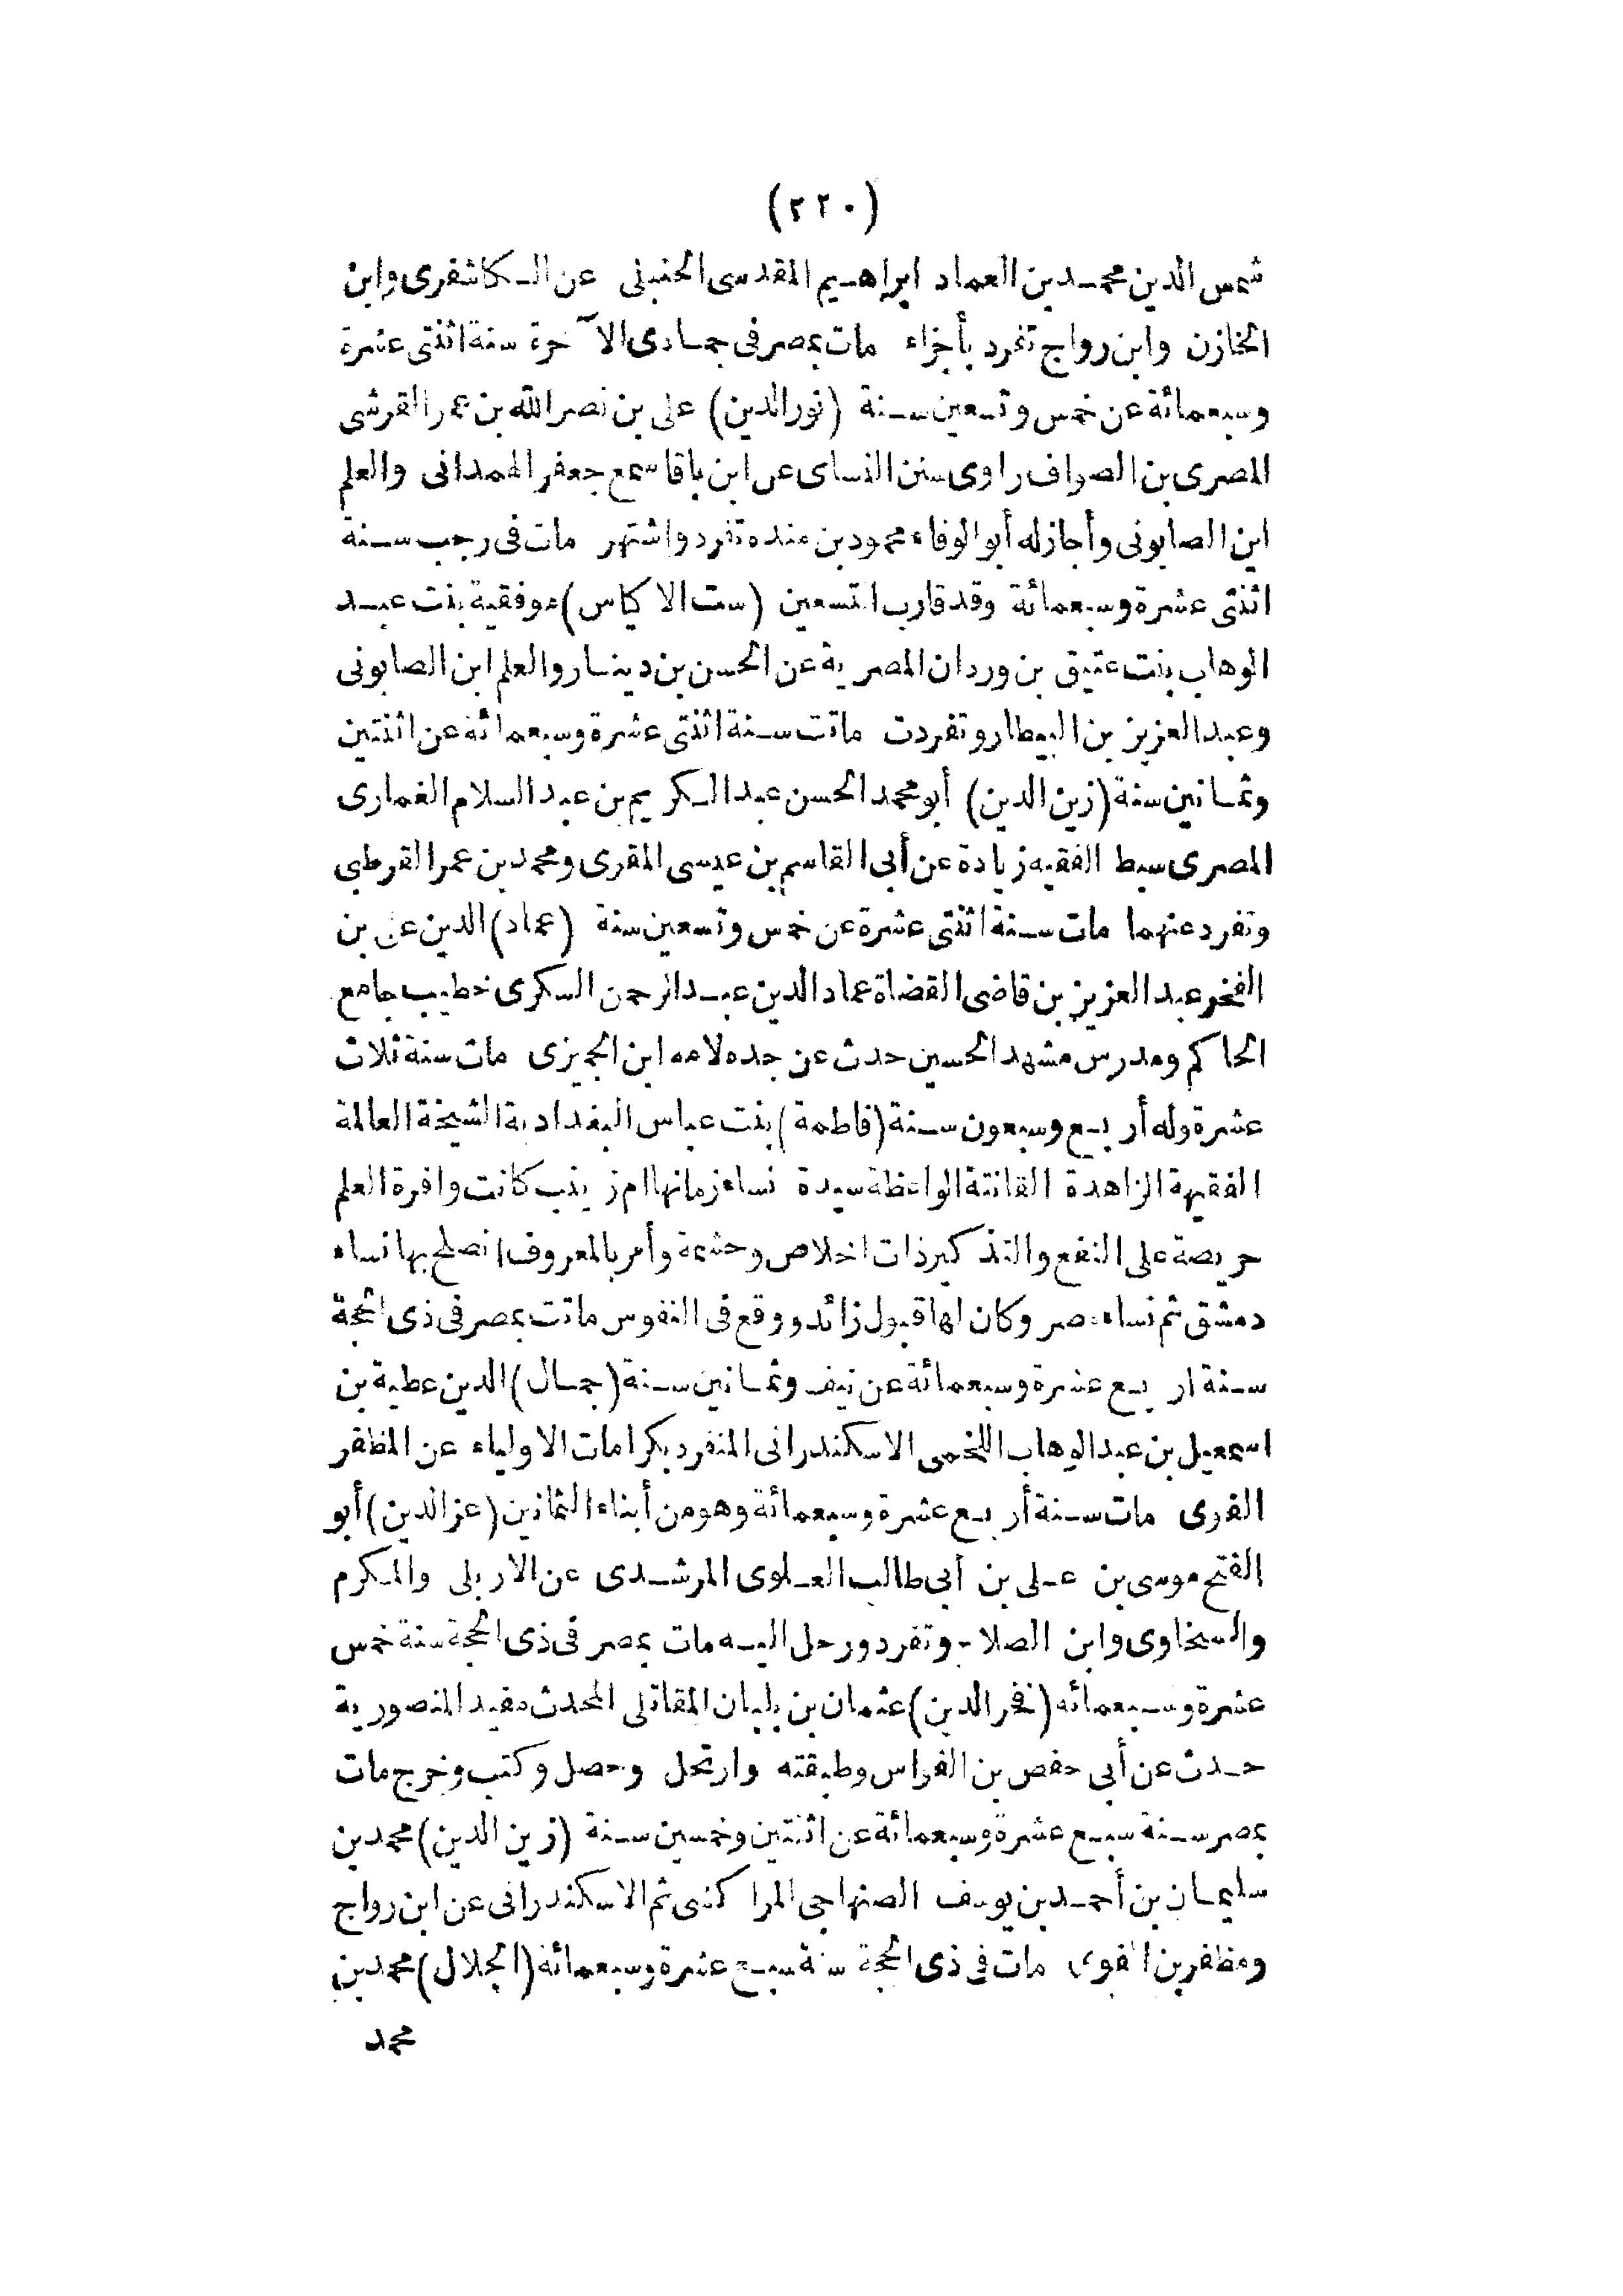 (٢٢٠)
شمس الدين محمد بن العماد ابراهيم المقدسى الحنبلى عن الكاشغرى وابن
الخازن وابن رواج تفرد بأجزاء مات بمصر فى جمادى الآخرة سنة اثنتى عشرة
وسبعمائة عن خمس وتسعين سنة (نور الدين) على بن نصر الله بن عمر القرشى
المصرى بن الصواف راوى سنن النساى عن ابن باقا سمع جعفر الهمدانى والعلم
ابن الصابونى وأجاز له أبو الوفاء محمود بن منده تفرد واشتهر مات فى رجب سنة
اثنتى عشرة وسبعمائة وقد قارب التسعين (ست الاكياس) موفقية بنت عبد
الوهاب بنت عتيق بن وردان المصرية عن الحسن بن دينار والعلم ابن الصابونى
وعبد العزيز بن البيطار وتفردت ماتت سنة اثنتى عشرة وسبعمائة عن اثنتين
وثمانين سنة (زين الدين) أبو محمد الحسن عبد الكريم بن عبد السلام الغمارى
المصرى سبط الفقيه زيادة عن أبى القاسم بن عيسى المقرى ومحمد بن عمر القرطبى
وتفرد عنهما مات سنة اثنتى عشرة عن خمس وتسعين سنة (عماد) الدين على بن
الفخر عبد العزيز بن قاضى القضاة عماد الدين عبد الرحمن السكرى خطيب جامع
الحاكم ومدرس مشهد الحسين حدث عن جده لامه ابن الجميزى مات سنة ثلاث
عشرة وله أربع وسبعون سنة (فاطمة) بنت عباس البغدادية الشيخة العالمة
الفقيهة الزاهدة القانتة الواعظة سيدة نساء زمانها ام زينب كانت وافرة العلم
حريصة على النفع والتذكير ذات اخلاص وحشمة وأمر بالمعروف انصلح بها نساء
دمشق ثم نساء مصر وكان لها قبول زائد ووقع فى النفوس ماتت بمصر فى ذى الحجة
سنة اربع عشرة وسبعمائة عن نيف وثمانين سنة (جمال) الدين عطية بن
اسمعيل بن عبد الوهاب اللخمى الاسكندرانى المنفرد بكرامات الاولياء عن المظفر
الفوى مات سنة أربع عشرة وسبعمائة وهو من أبناء الثمانين (عز الدين) أبو
الفتح موسى بن على بن أبى طالب العلوى المرشدى عن الاربلى والمكرم
والسخاوى وابن الصلاح وتفرد ورحل اليه مات بمصر فى ذى الحجة سنة خمس
عشرة وسبعمائه (فخر الدين) عثمان بن بلبان المقاتلى المحدث مفيد المنصورية
حدث عن أبى حفص بن القواس وطبقته وارتحل وحصل وكتب وخرج مات
بمصر سنة سبع عشرة وسبعمائة عن اثنتين وخمسين سنة (زين الدين) محمد بن
سليمان بن أحمد بن يوسف الصنهاجى المراكشى ثم الاسكندرانى عن ابن رواج
ومظفر بن الفوى مات فى ذى الحجة سنة سبع عشرة وسبعمائة (الجلال) محمد بن
محمد